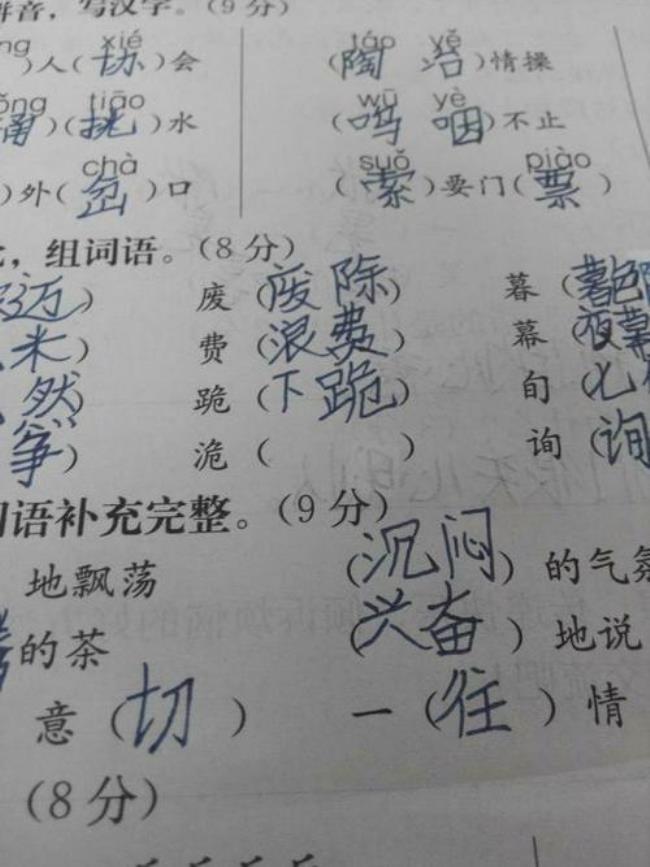 拼音，写汉字。（9分）
xié táo yě
）人（协）会 （陶冶）情操
tiāo wū yè
）（挑）水 （呜咽）不止
chà suǒ piào
）外（岔）口 （索）要门（票）
，组词语。（8分）
迈） 废（废除） 暮（暮色
米） 费（浪费） 幕（夜幕
然） 跪（下跪） 旬（七
筝） 诡（ ） 询（询
词语补充完整。（9分）
地飘荡 （沉闷）的气氛
的茶 （兴奋）地说
意（切） 一（往）情
（8分）